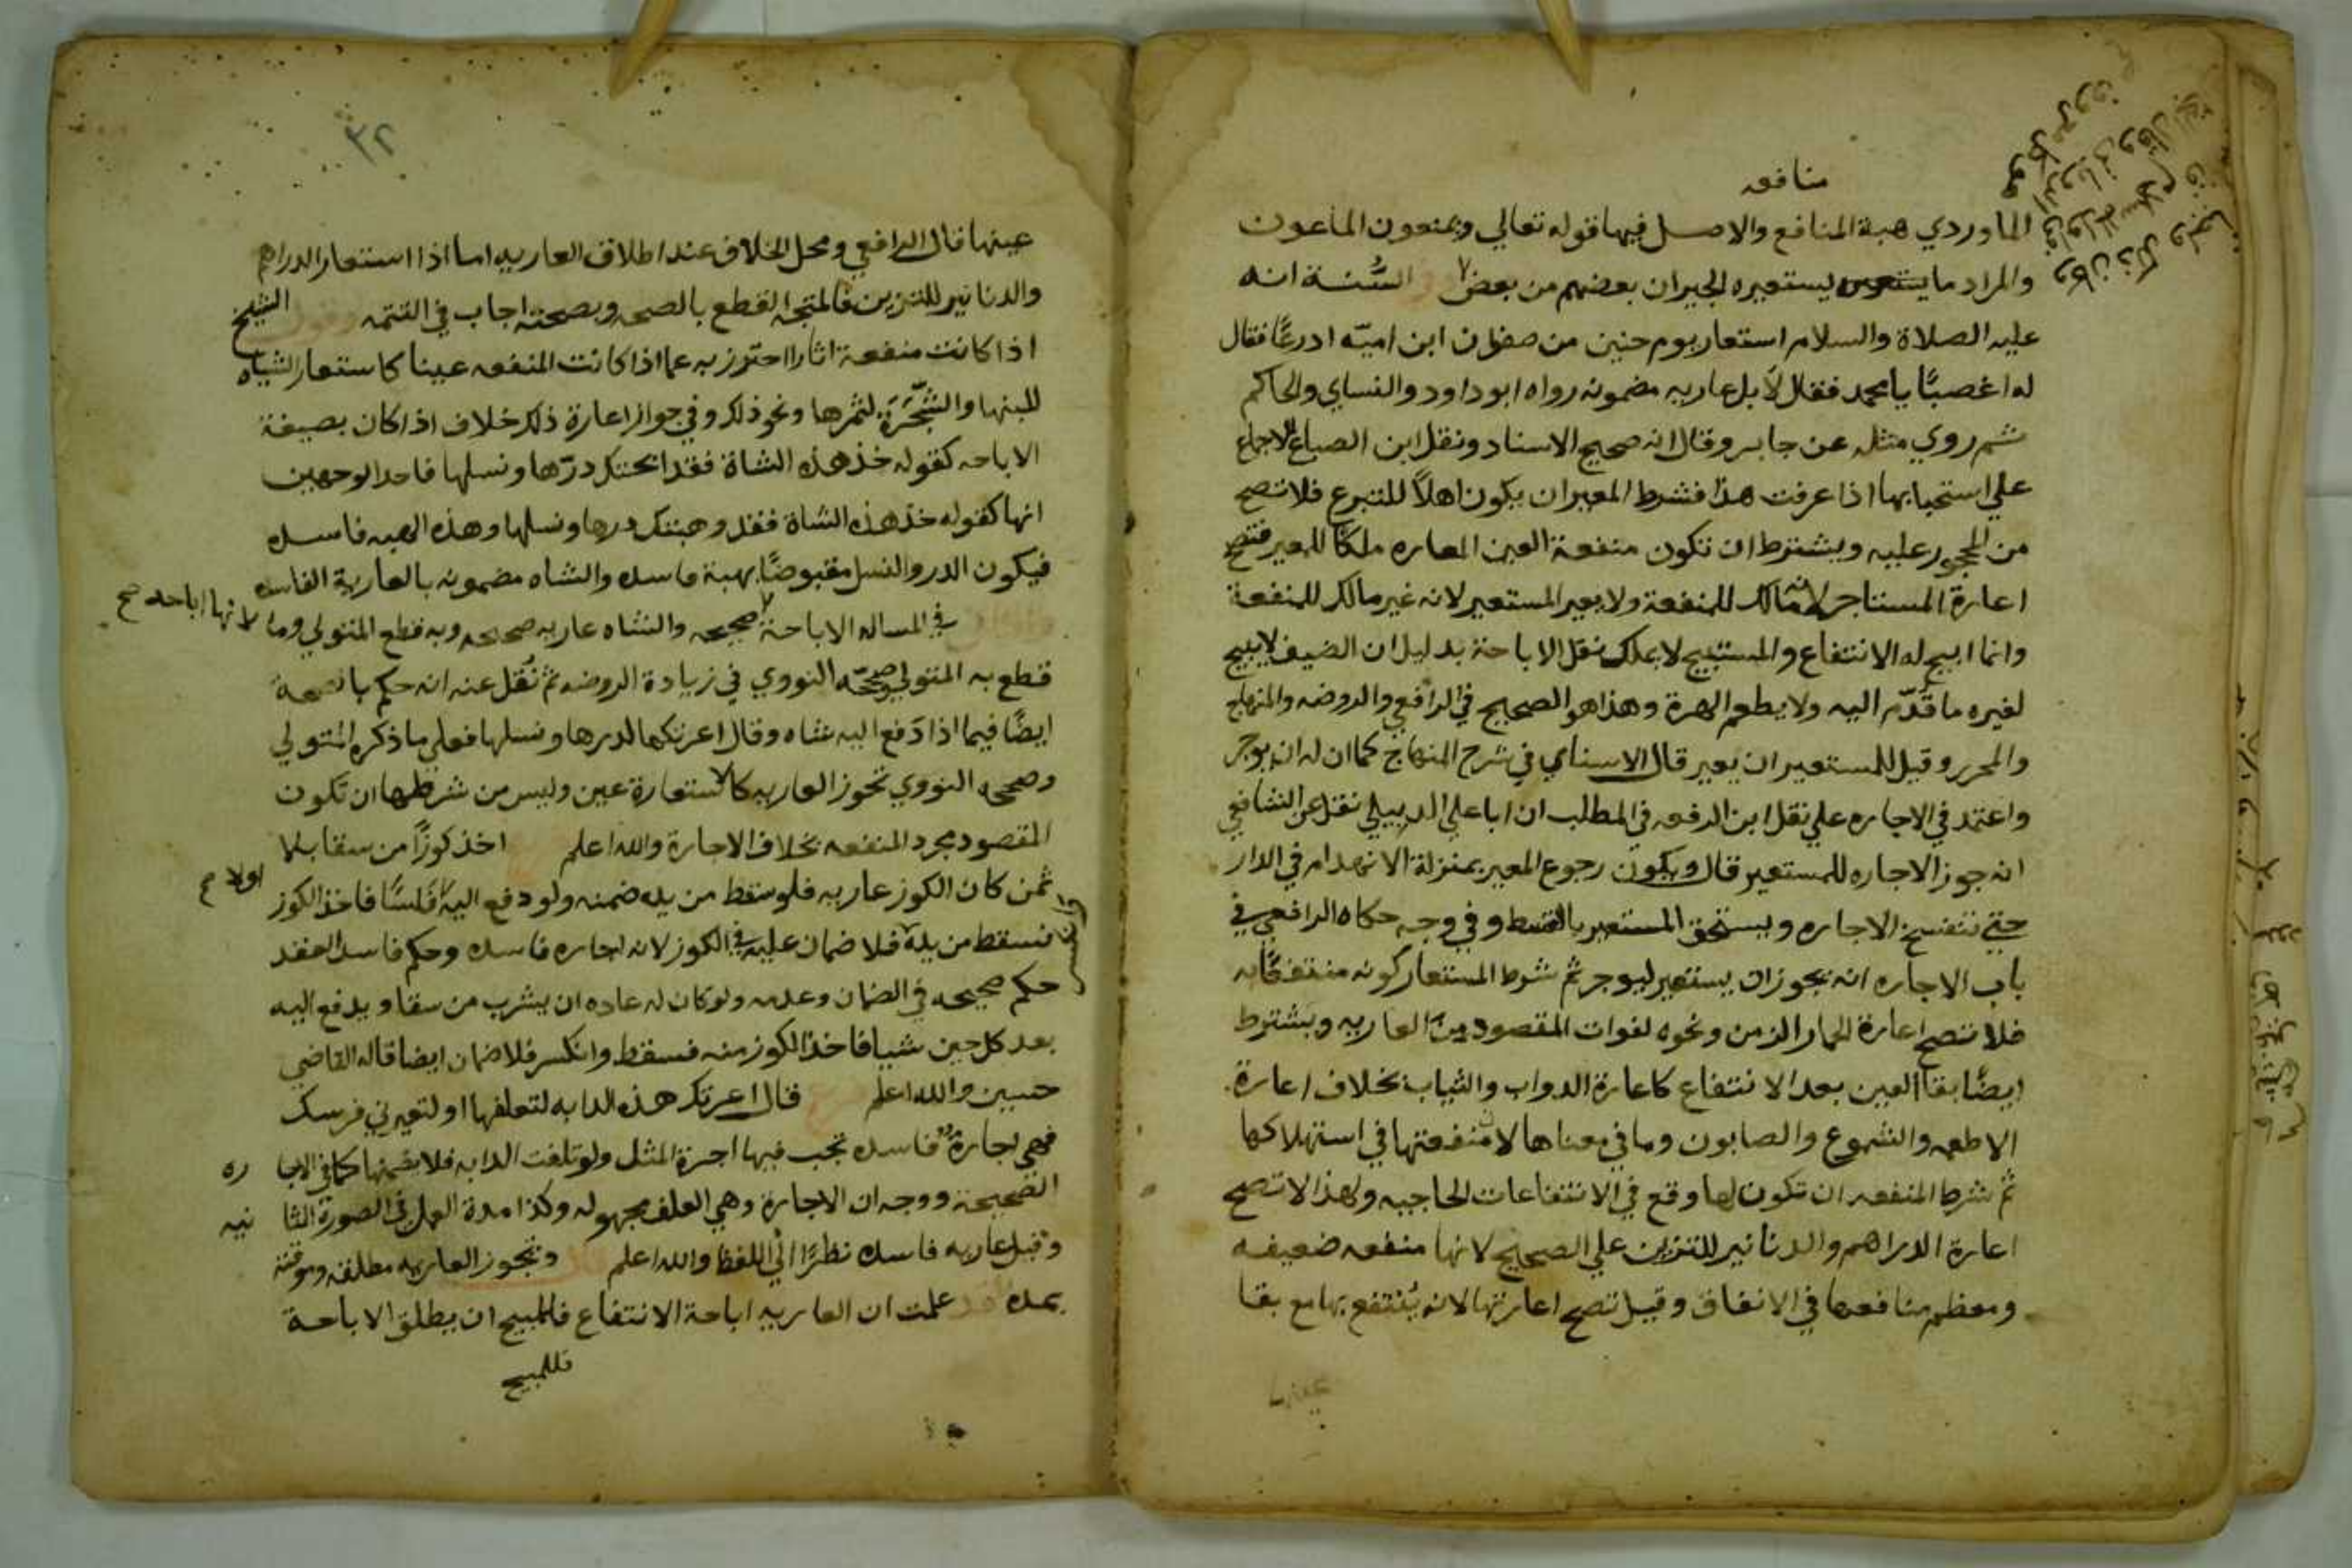 منافعه
الماوردي هبة المنافع والاصل فيها قوله تعالي ويمنعون الماعون
والمراد ما يستعيره الجيران بعضهم من بعض السُّنة انه
عليه الصلاة والسلام استعار يوم حنين من صفوان ابن اميّه ادرعًا فقال
له اغصبًا يا محمد فقال لا بل عاريه مضمونه رواه ابو داود والنساي والحاكم
ثم روي مثله عن جابر وقال انه صحيح الاسناد ونقل ابن الصباغ الاجماع
علي استحبابها اذا عرفت هذا فشرط المعير ان يكون اهلاً للتبرع فلا تصح
من المحجور عليه ويشترط ان تكون منفعة العين المعاره ملكًا للمعير فتصح
اعارة المستاجر لانه مالك للمنفعة ولا يعير المستعير لانه غير مالك للمنفعة
وانما ابيح له الانتفاع والمستبيح لا يملك نقل الاباحة بدليل ان الضيف لا يبيح
لغيره ما قُدّم اليه ولا يطعم الهرة وهذا هو الصحيح في الرافعي والروضه والمنهاج
والمحرر وقيل للمستعير ان يعير قال الاسناي في شرح المنهاج كما ان له ان يوجر
واعتمد في الاجاره علي نقل ابن الرفعه في المطلب ان ابا علي الدبيلي نقل عن الشافعي
انه جوز الاجاره للمستعير قال ويكون رجوع المعير بمنزلة الانهدام في الدار
حتي تنفسخ الاجاره ويستحق المستعير بالقسط وفي وجه حكاه الرافعي في
باب الاجاره انه يجوز ان يستعير ليوجر ثم شرط المستعار كونه منتفعًا به
فلا تصح اعارة الحمار الزمن ونحوه لفوات المقصود من العاريه ويشترط
ايضًا بقا العين بعد الانتفاع كاعارة الدواب والثياب بخلاف اعارة
الاطعمه والشموع والصابون وما في معناها لان منفعتها في استهلاكها
ثم شرط المنفعه ان تكون لها وقع في الانتفاعات الحاجيه ولهذا لا تصح
اعارة الدراهم والدنانير للتزين علي الصحيح لانها منفعه ضعيفه
ومعظم منافعها في الانفاق وقيل تصح اعارتها لانه يُنتفع بها مع بقا
عينها
٣٢
عينها قال الرافعي ومحل الخلاف عند اطلاق العاريه اما اذا استعار الدراهم
والدنانير للتزين فالمتجه القطع بالصحه وبصحته اجاب في التتمه وقول الشيخ
اذا كانت منفعة اثارا احترز به عما اذا كانت المنفعه عينا كاستعار الشياه
للبنها والشَّجَرَة لثمرها ونحو ذلك وفي جواز اعارة ذلك خلاف اذا كان بصيغة
الاباحه كقوله خذ هذه الشاة فقد ابحتك درّها ونسلها فاحد الوجهين
انها كقوله خذ هذه الشاة فقد وهبتك درها ونسلها وهذه الهبه فاسده
فيكون الدر والنسل مقبوضًا بهبة فاسده والشاه مضمونه بالعارية الفاسده
في المساله الاباحة صحيحه والشاه عاريه صحيحه وبه قطع المتولي وما
لانها اباحه صح
قطع به المتولي صححه النووي في زيادة الروضه ثم نُقل عنه انه حكم بالصحة
ايضًا فيما اذا دَفع اليه شاه وقال اعرتكها لدرها ونسلها فعلي ما ذكره المتولي
وصححه النووي تجوز العاريه كالاستعارة عين وليس من شرطها ان تكون
المقصود مجرد المنفعه بخلاف الاجارة والله اعلم اخذ كوزًا من سقا بلا
ثمن كان الكوز عاريه فلو سقط من يده ضمنه ولو دفع اليه فَلسًا فاخذ الكوز
اولا صح
فسقط من يده فلا ضمان عليه في الكوز لانه اجاره فاسده وحكم فاسد العقد
حكم صحيحه في الضمان وعدمه ولو كان له عاده ان يشرب من سقا ويدفع اليه
بعد كل حين شيا فاخذ الكوز منه فسقط وانكسر فلا ضمان ايضا قاله القاضي
حسين والله اعلم فرع قال اعرتك هذه الدابه لتعلفها او لتعيرني فرسك
فهي اجارة فاسده تجب فيها اجرة المثل ولو تلفت الدابه فلا يضمنها كما في الاجا ره
الصحيحة ووجه ان الاجارة وهي العلف مجهوله وكذا مدة العمل في الصورة الثا نيه
وقيل عاريه فاسده نظرًا الي اللفظ والله اعلم وتجوز العاريه مطلقه وموقتة
بمده قد علمت ان العاريه اباحة الانتفاع فالمبيح ان يطلق الاباحة
فللمبيح